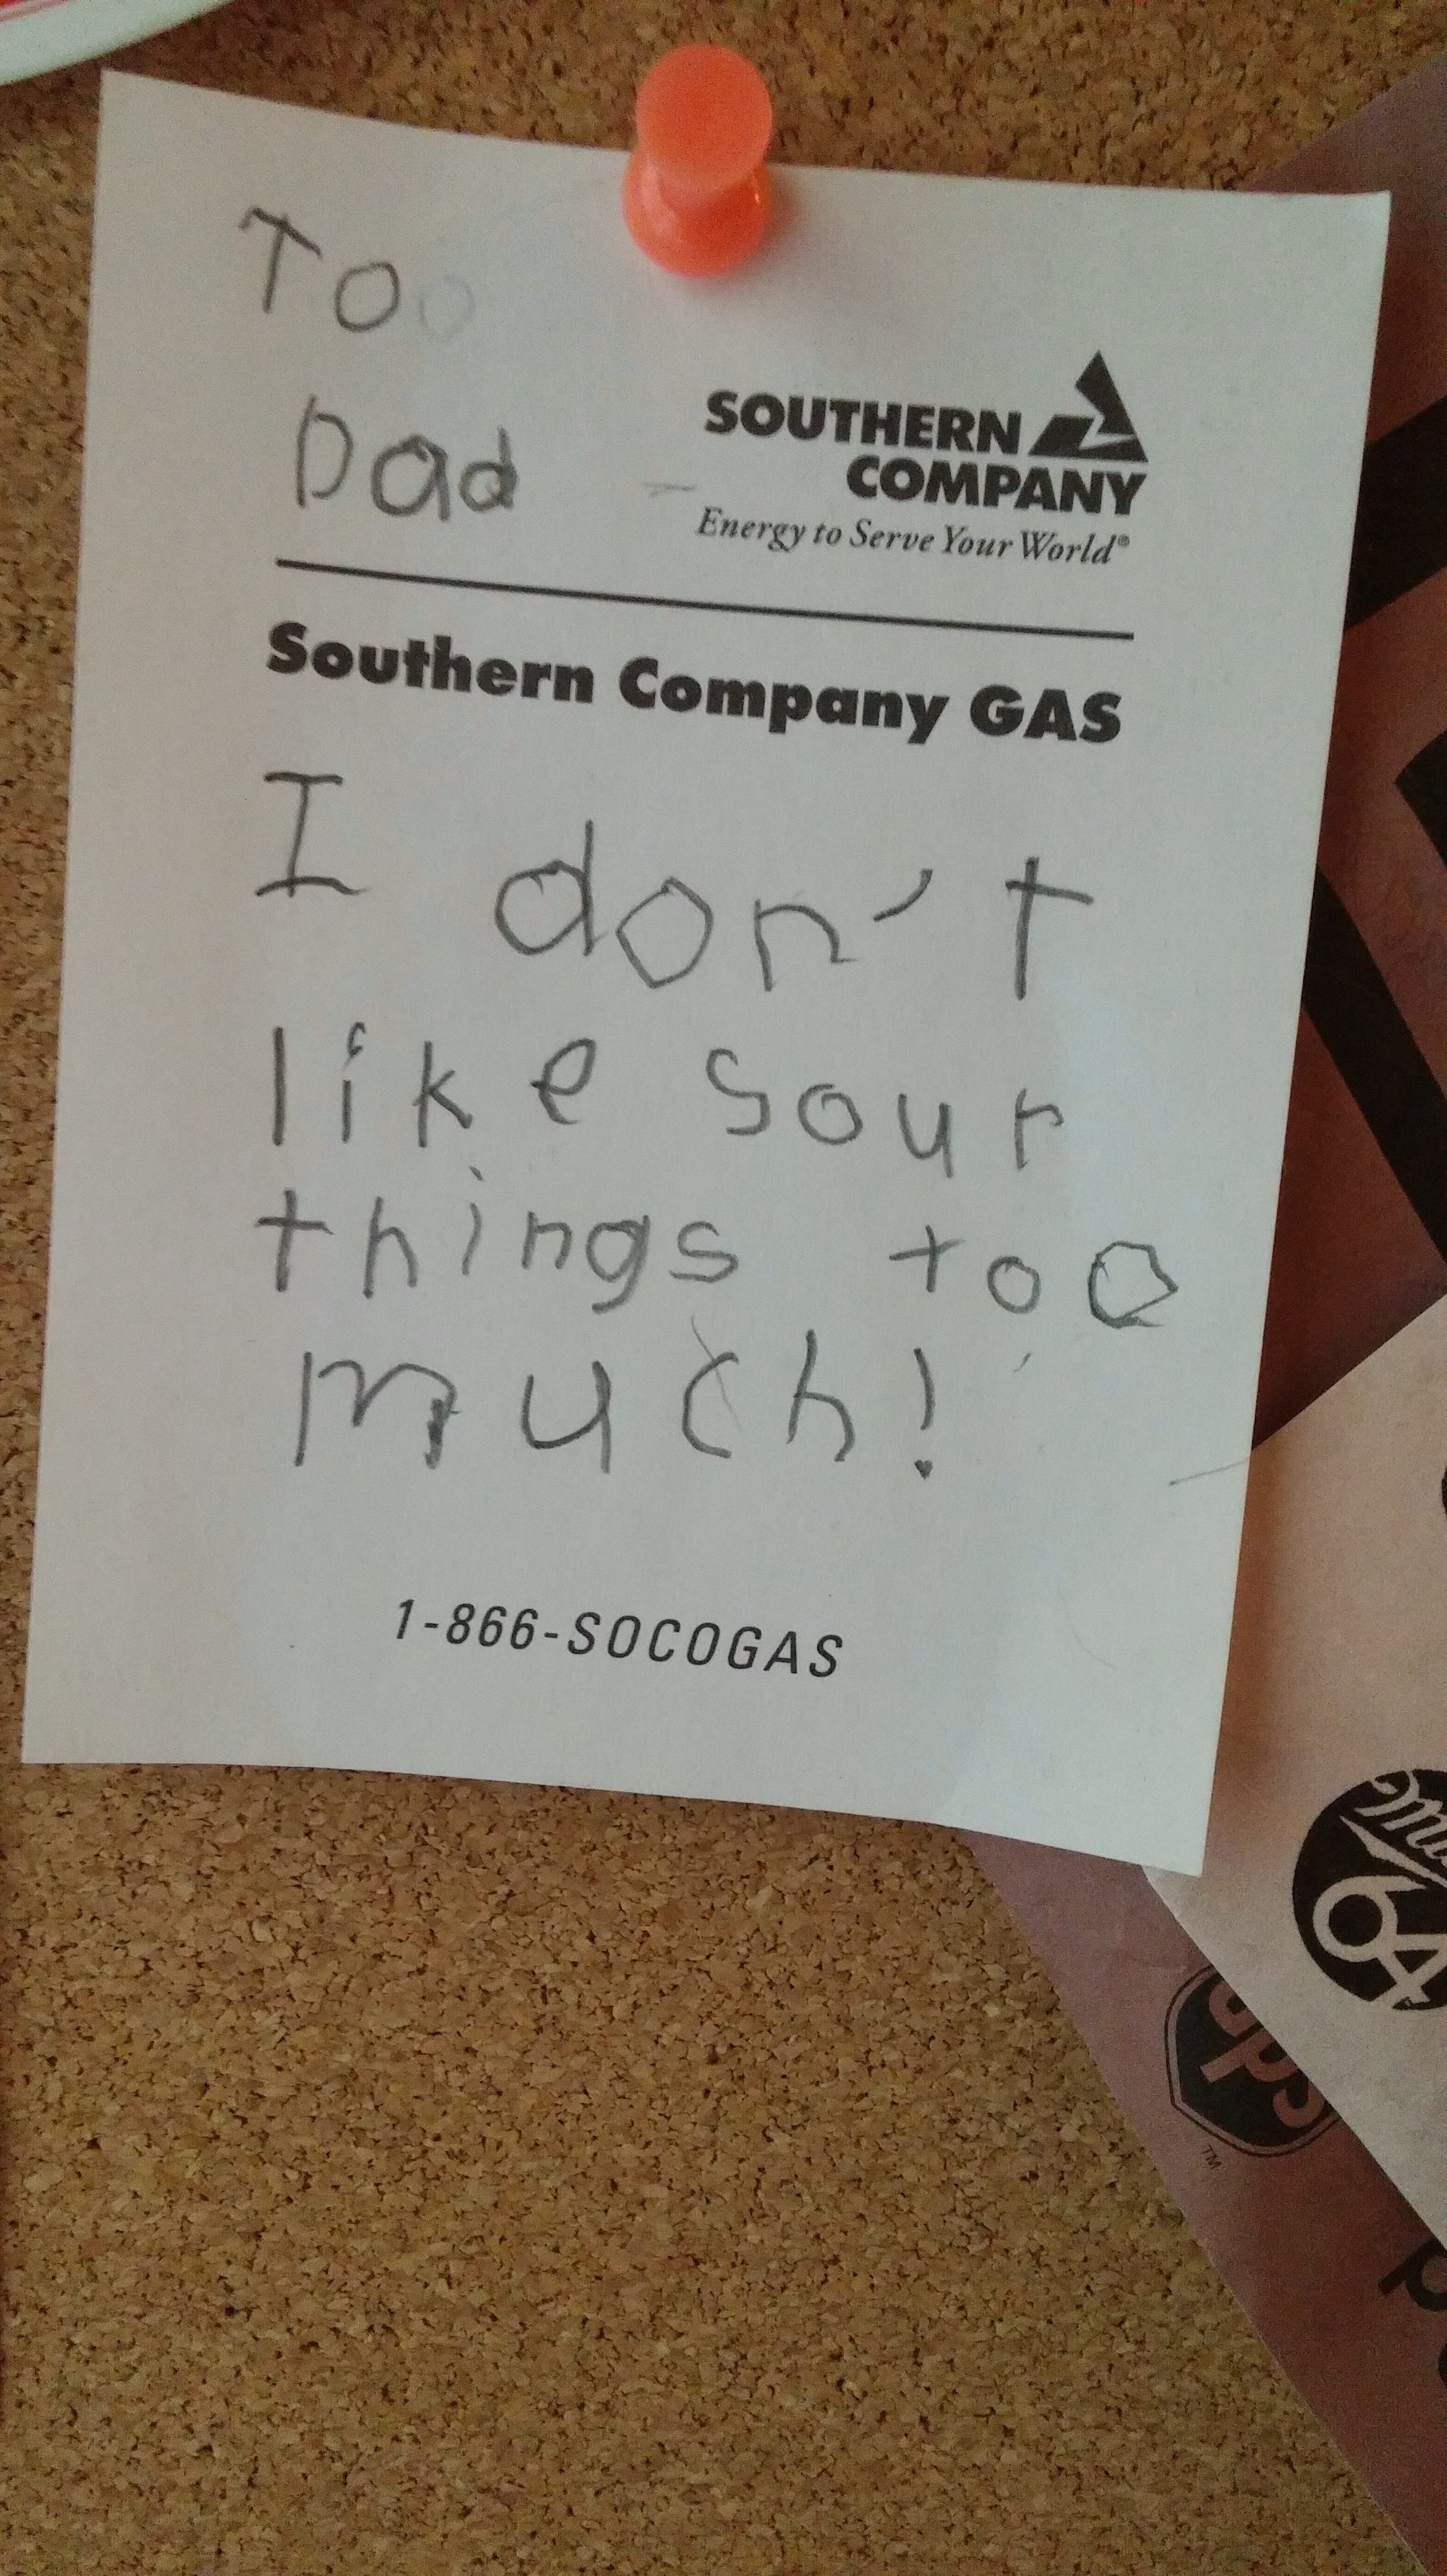 To
Dad
SOUTHERN
COMPANY
Energy to Serve Your World®
Southern Company GAS
I don't
like sour
things too
much!
1-866-SOCOGAS
64
ups
TM